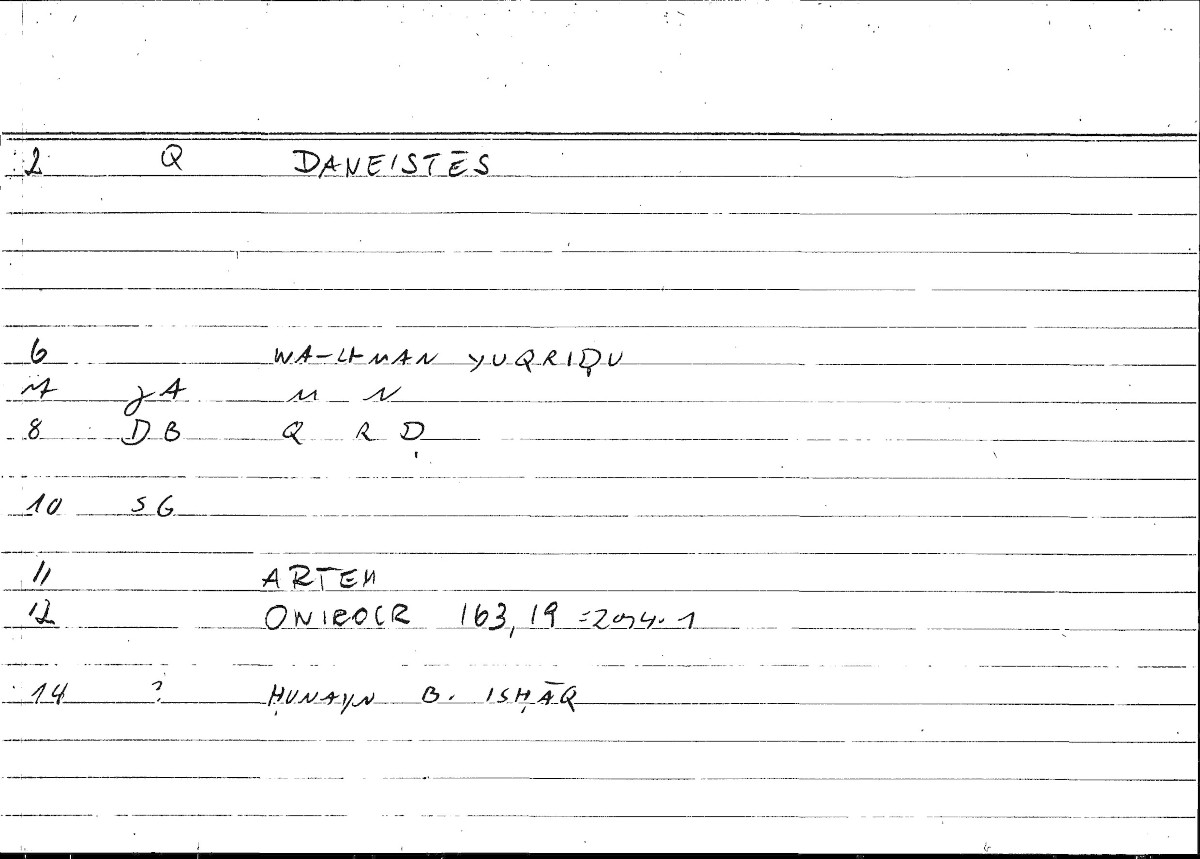 2 Q DANEISTĒS
6 WA-MAN YUQRIḌU
7 JA M N
8 DB Q R Ḍ
10 SG
11 ARTEM
12 ONIROCR 163,19
14 ? ḤUNAYN B. ISḤĀQ